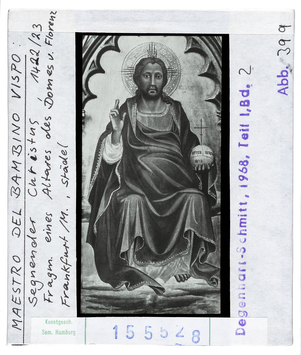 MAESTRO DEL BAMBINO VISPO:
Segnender Christus 1422/23
Fragm. eines Altares des Domes v. Florenz
Frankfurt/M., Städel
Kunstgesch.
Sem. Hamburg
155528
Degenhart-Schmitt, 1968, Teil I, Bd. 2
Abb. 399